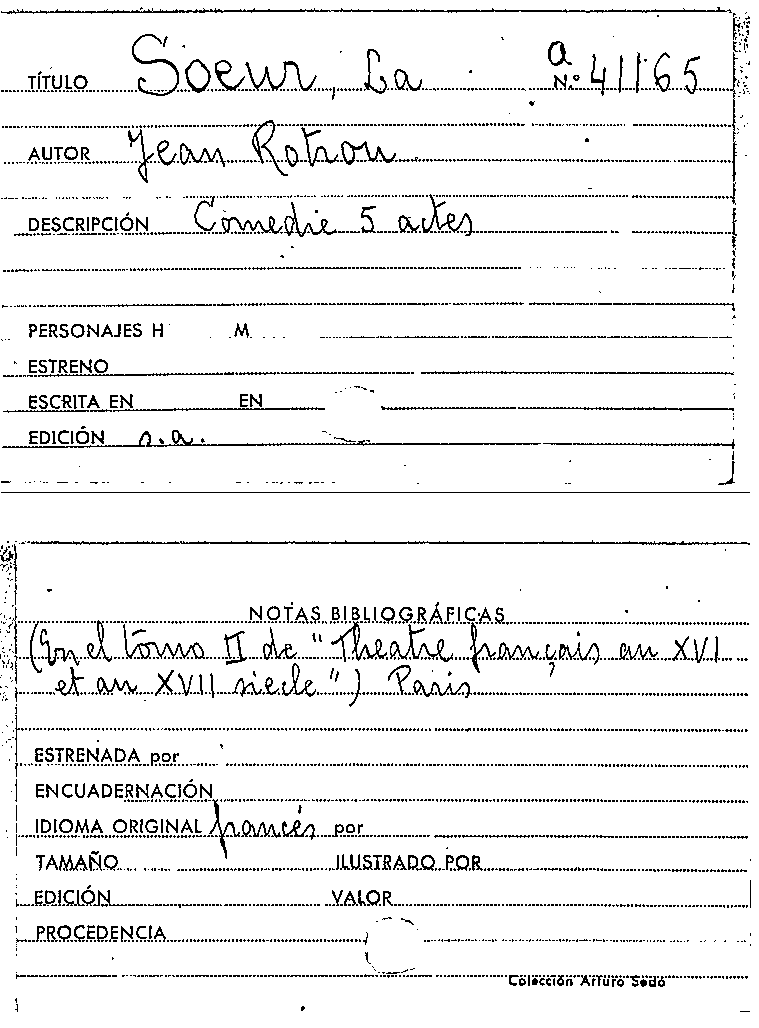 TÍTULO Soeur, La a
N.º 41165
AUTOR Jean Rotrou
DESCRIPCIÓN Comedie 5 actes
PERSONAJES H M
ESTRENO
ESCRITA EN EN
EDICIÓN s.a.
NOTAS BIBLIOGRÁFICAS
(En el tomo II de "Theatre français au XVI
et au XVII siecle") Paris
ESTRENADA por
ENCUADERNACIÓN
IDIOMA ORIGINAL francés por
TAMAÑO ILUSTRADO POR
EDICIÓN VALOR
PROCEDENCIA
Colección Arturo Sedó